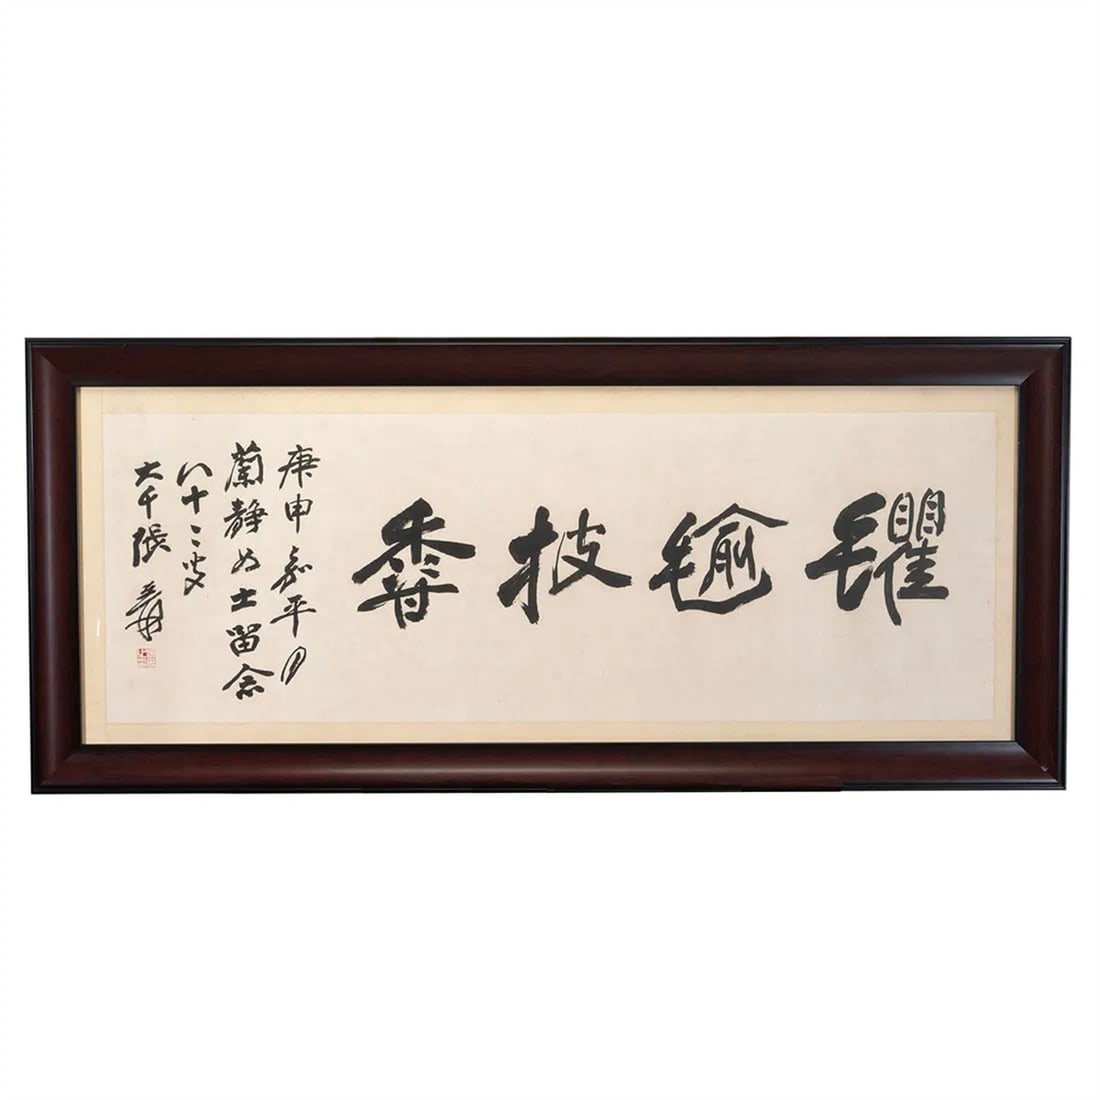 氍毹技香
庚申嘉平月
蘭靜女士留念
八十二叟
大千張爰